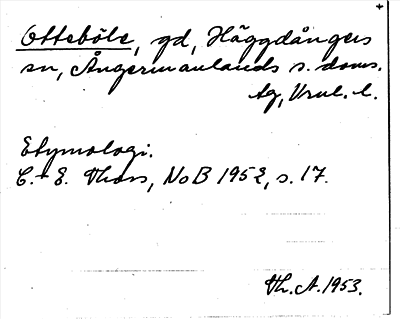 Otteböle, gd, Häggdångers
sn, Ångermanlands s. doms.
tg, Vnl. l.
Etymologi.
C.-E. Thors, NoB 1952, s. 17.
Th. A. 1953.